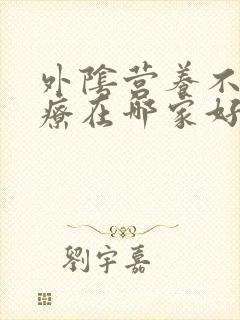 外陰营养不
療在哪家好
劉宇嘉